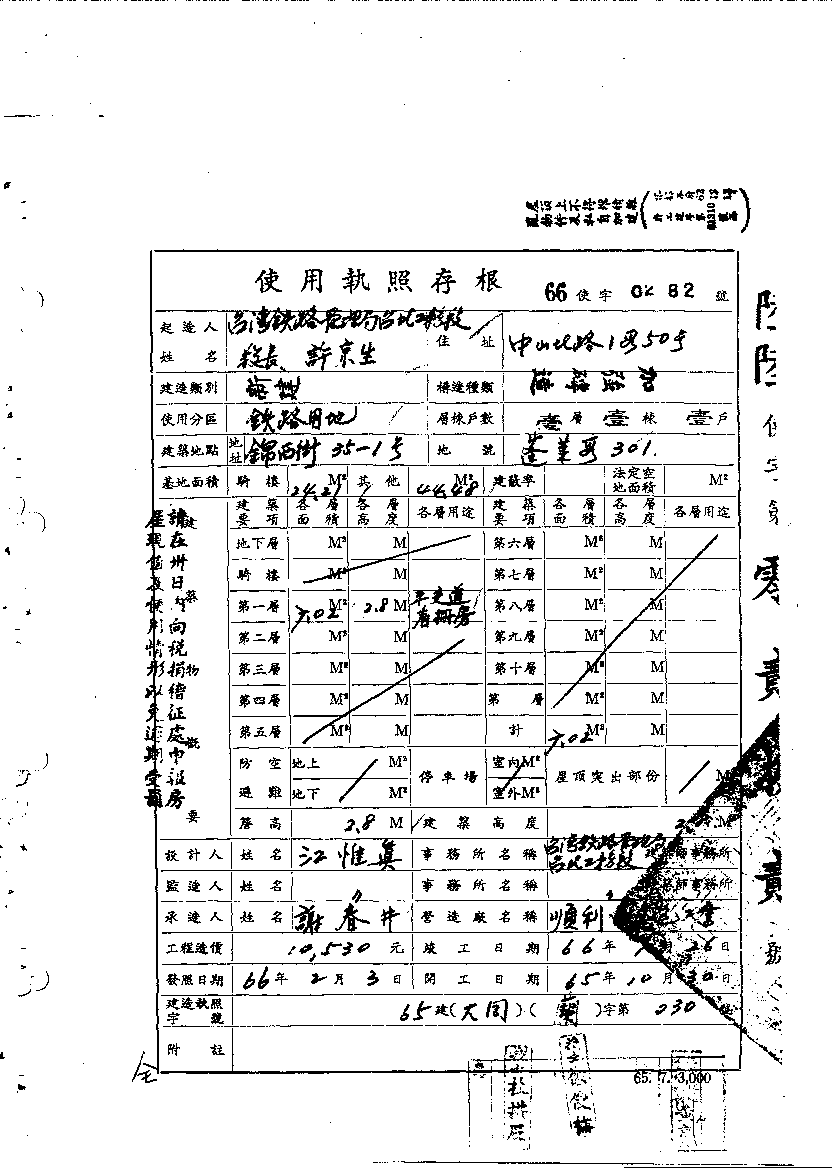 使用執照存根 66使字0282號
起造人姓名 台湾鉄路管理局台北工務段 段長 許京生 住址 中山北路1段50号
建造類別 構造種類 加強磚造
使用分區 鉄路用地 層棟戶數 壹層壹棟壹戶
建築地點 地址 錦西街35-1号 地號 蓬萊段301.
基地面積 騎樓 M² 其他 44.48 M² 建蔽率 法定空地面積 M²
建築要項 各層面積 各層高度 各層用途 建築要項 各層面積 各層高度 各層用途
地下層 M² M 第六層 M² M
騎樓 M² M 第七層 M² M
第一層 7.02 M² 2.8 M 平交道看柵房 第八層 M² M
第二層 M² M 第九層 M² M
第三層 M² M 第十層 M² M
第四層 M² M 第 層 M² M
第五層 M² M 計 7.02 M² M
防空避難 地上 M² 停車場 室內M² 屋頂突出部份 M²
地下 M² 室外M²
簷高 2.8 M 建築高度 M
建築物概要
請在卅日內向稅捐稽征處申報房
屋現值及使用情形以免逾期受罰
設計人 姓名 江惟真 事務所名稱 台湾鉄路管理局台北工務段 師事務所
監造人 姓名 〃 事務所名稱 〃 師事務所
承造人 姓名 謝春井 營造廠名稱 順利
工程造價 10,530元 竣工日期 66年 月26日
發照日期 66年2月3日 開工日期 65年10月30日
建造執照字號 65建(大同)(蘭)字第030號
附註
全
65.7.3,000
使字第
零
號